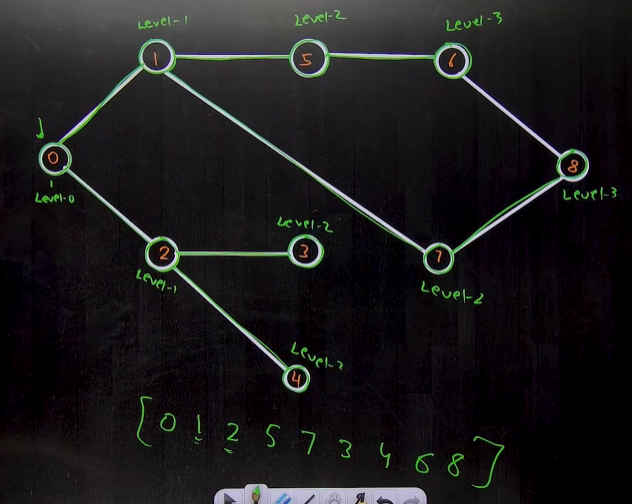 Level-1
Level-2
Level-3
1
5
6
0
8
Level-0
Level-3
Level-2
2
3
7
Level-1
Level-2
Level-2
4
[0 1 2 5 7 3 4 6 8]